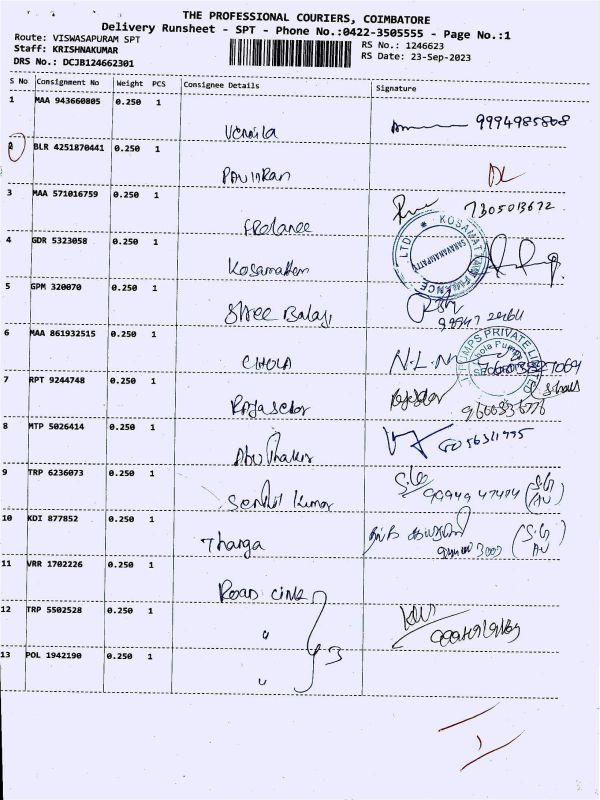 THE PROFESSIONAL COURIERS, COIMBATORE
Delivery Runsheet - SPT - Phone No.:0422-3505555 - Page No.:1
Route: VISWASAPURAM SPT
Staff: KRISHNAKUMAR
DRS No.: DCJB124662301
RS No.: 1246623
RS Date: 23-Sep-2023
S No Consignment No Weight PCS Consignee Details Signature
1 MAA 943660805 0.250 1
Vennila 9994985808
2 BLR 4251870441 0.250 1
Pavitran DL
3 MAA 571016759 0.250 1
7305013672
4 GDR 5323058 0.250 1
Kosamattam
KOSAMATTAM FINANCE LTD
SARAVANAMPATTY
5 GPM 320070 0.250 1
Shree Balaji
6 MAA 861932515 0.250 1
CHOLA N.L.N
PUMPS PRIVATE LI
Chola Pumps
7 RPT 9244748 0.250 1
Rajasekar
8 MTP 5026414 0.250 1
Abu Thakir
9 TRP 6236073 0.250 1
Senthil Kumar 99949 47474
10 KDI 877852 0.250 1
Thanga
11 VRR 1702226 0.250 1
Road Cink
12 TRP 5502528 0.250 1
"
13 POL 1942190 0.250 1
" 3